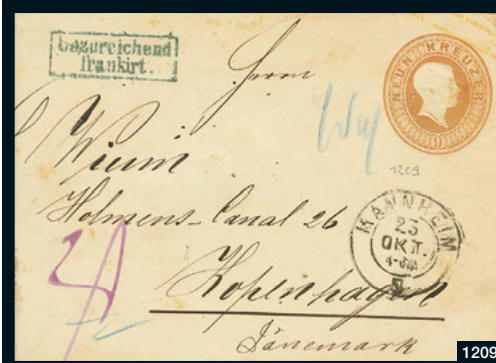 unzureichend
frankirt.
NEUN KREUZER
9
Herrn
Wium
1209
Holmens-Canal 26
MANNHEIM
23
OKT.
4-5N
5
Kopenhagen
Dänemark
1209